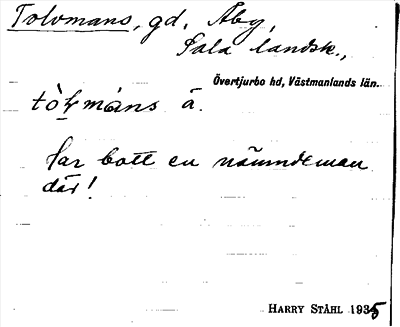 Tolvmans, gd. Åby,
Sala landsk.,
Övertjurbo hd, Västmanlands län.
tòl̥vmáns å.
har bott en nämndeman
där!
HARRY STÅHL 1935